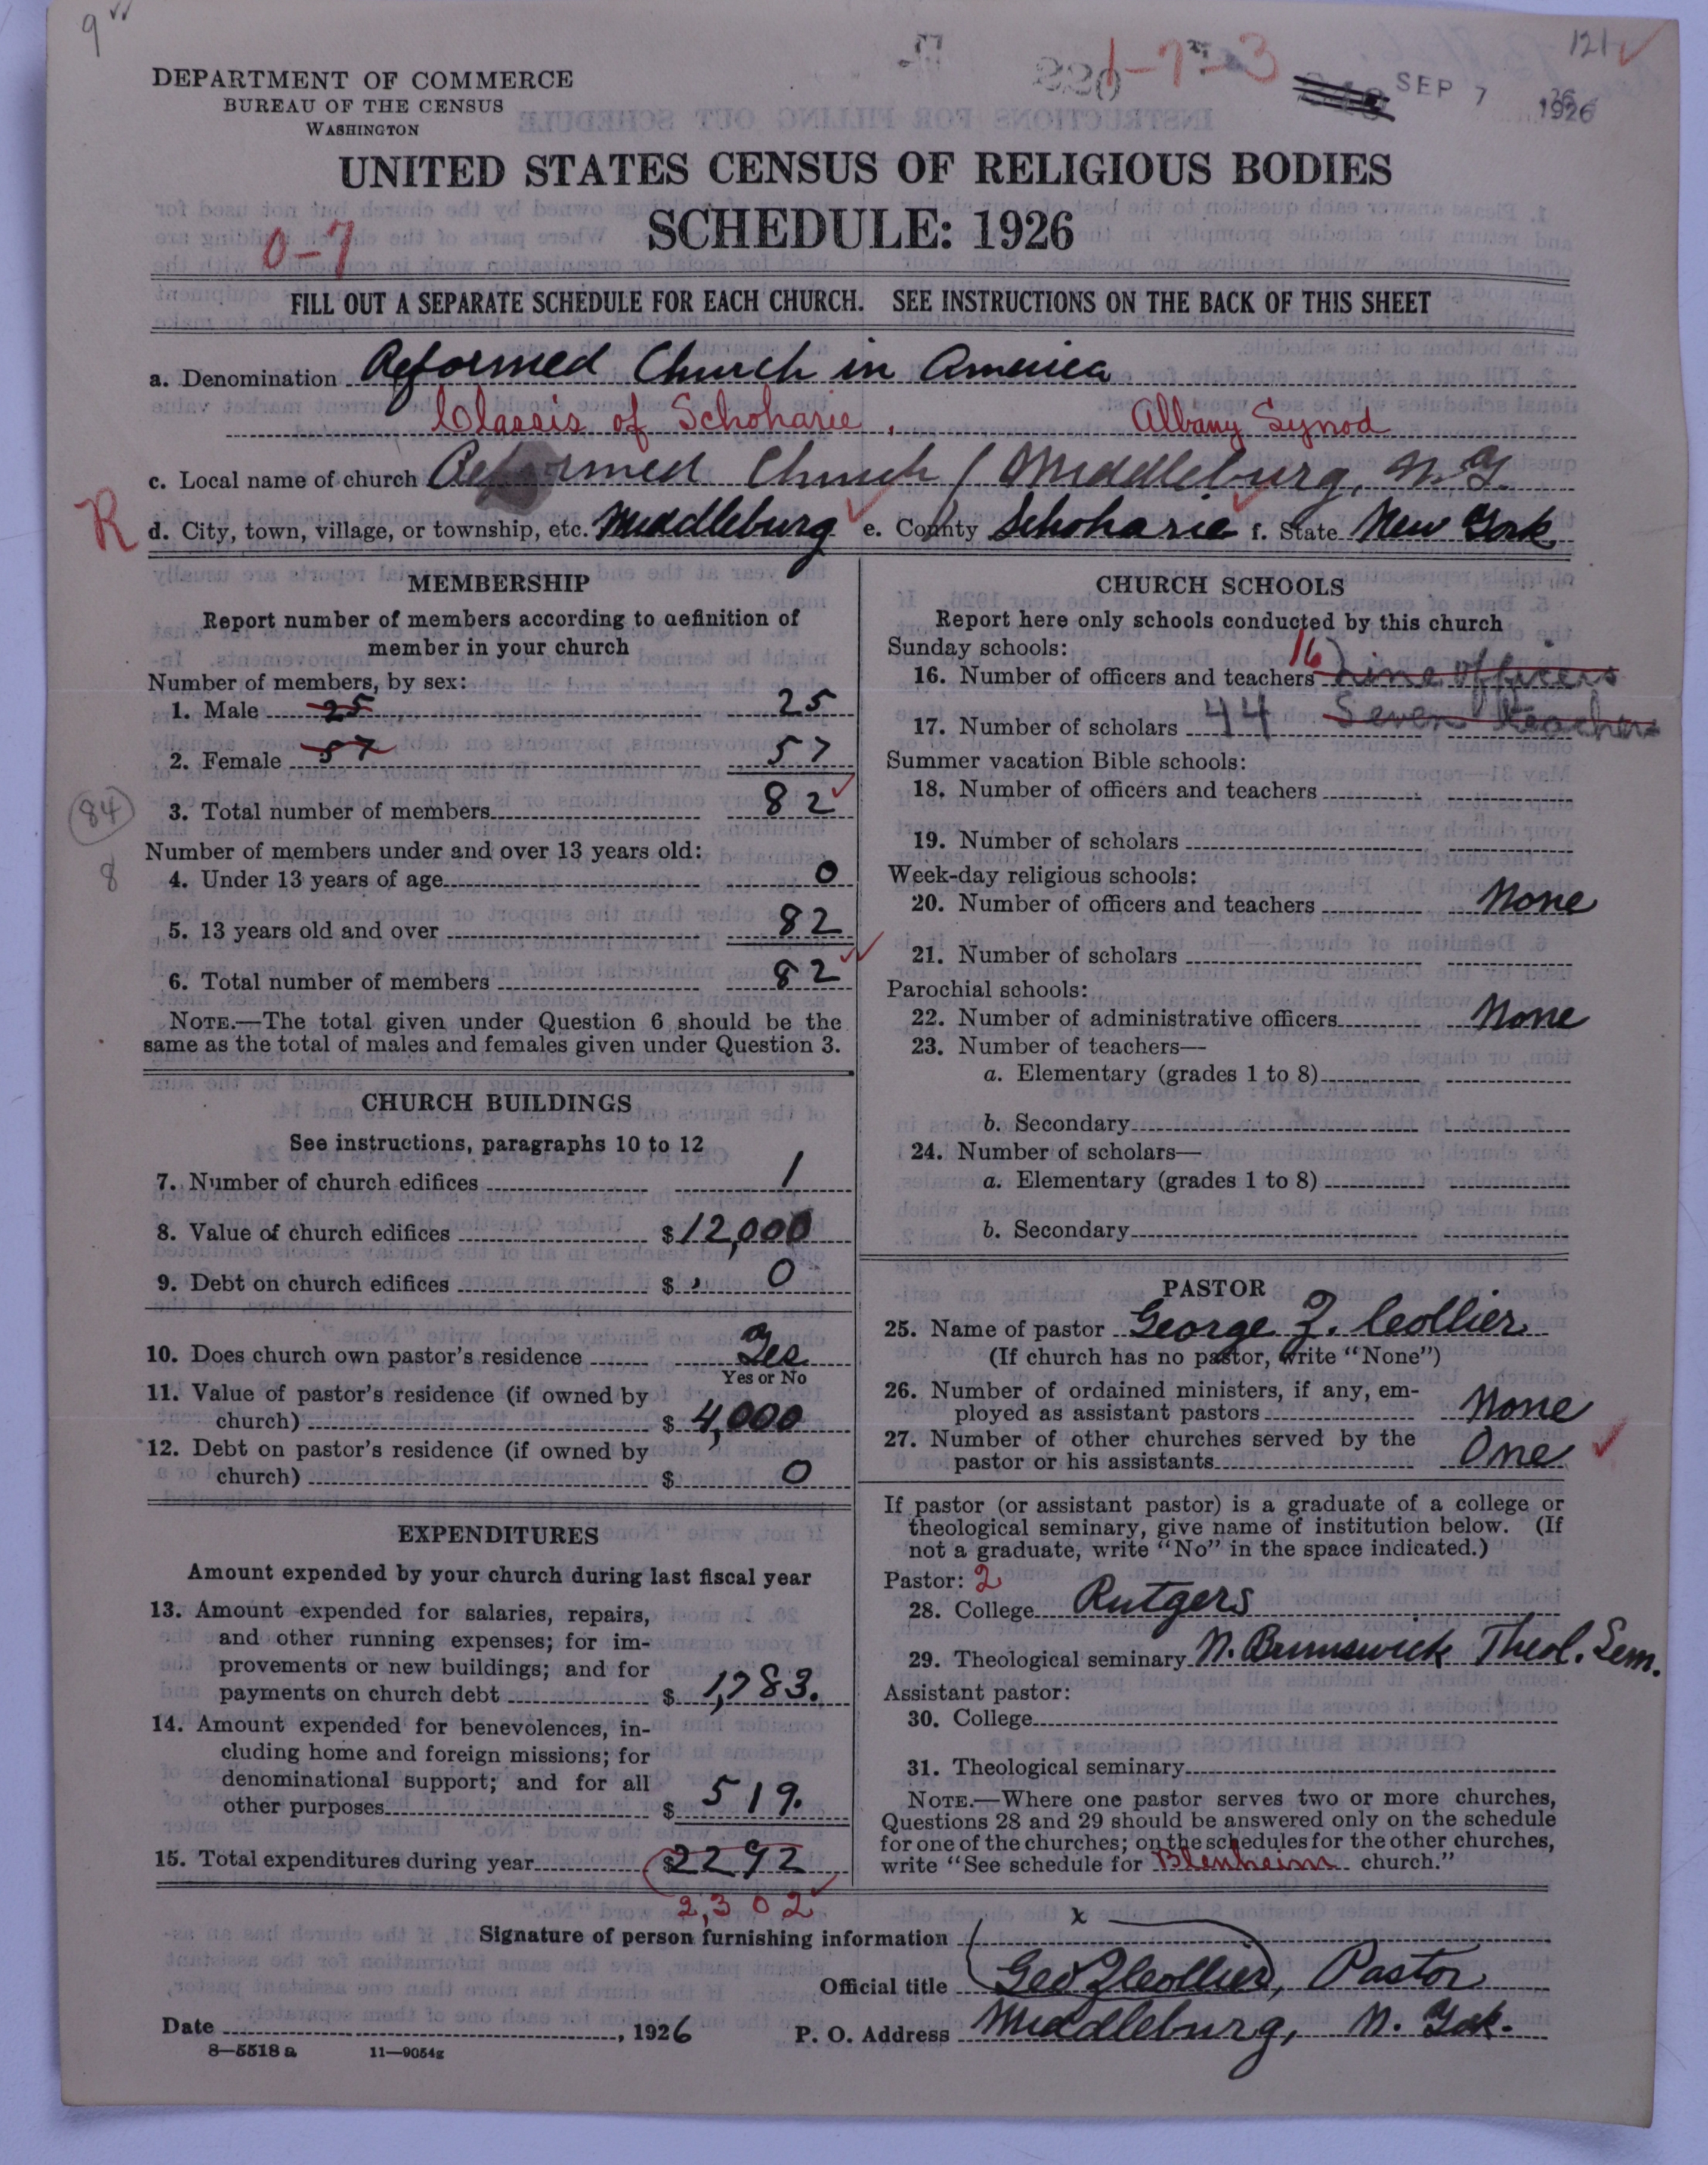 9
121
220 1-7-3
SEP 7 1926
DEPARTMENT OF COMMERCE
BUREAU OF THE CENSUS
WASHINGTON
UNITED STATES CENSUS OF RELIGIOUS BODIES
SCHEDULE: 1926
0-7
FILL OUT A SEPARATE SCHEDULE FOR EACH CHURCH. SEE INSTRUCTIONS ON THE BACK OF THIS SHEET
a. Denomination Reformed Church in America
Classis of Schoharie, Albany Synod
c. Local name of church Reformed Church / Middleburg, N.Y.
R
d. City, town, village, or township, etc. Middleburg e. County Schoharie f. State New York
MEMBERSHIP
Report number of members according to definition of
member in your church
Number of members, by sex:
1. Male 25 25
2. Female 57 57
84
3. Total number of members 82
Number of members under and over 13 years old:
8
4. Under 13 years of age 0
5. 13 years old and over 82
6. Total number of members 82
NOTE.—The total given under Question 6 should be the
same as the total of males and females given under Question 3.
CHURCH BUILDINGS
See instructions, paragraphs 10 to 12
7. Number of church edifices 1
8. Value of church edifices $12,000
9. Debt on church edifices $ 0
10. Does church own pastor's residence Yes
Yes or No
11. Value of pastor's residence (if owned by
church) $ 4,000
12. Debt on pastor's residence (if owned by
church) $ 0
EXPENDITURES
Amount expended by your church during last fiscal year
13. Amount expended for salaries, repairs,
and other running expenses; for im-
provements or new buildings; and for
payments on church debt $ 1,783.
14. Amount expended for benevolences, in-
cluding home and foreign missions; for
denominational support; and for all
other purposes $ 519.
15. Total expenditures during year $2292
2,302
CHURCH SCHOOLS
Report here only schools conducted by this church
Sunday schools:
16. Number of officers and teachers 16 nine officers
17. Number of scholars 44 Seven teachers
Summer vacation Bible schools:
18. Number of officers and teachers
19. Number of scholars
Week-day religious schools:
20. Number of officers and teachers None
21. Number of scholars
Parochial schools:
22. Number of administrative officers None
23. Number of teachers—
a. Elementary (grades 1 to 8)
b. Secondary
24. Number of scholars—
a. Elementary (grades 1 to 8)
b. Secondary
PASTOR
25. Name of pastor George Z. Collier
(If church has no pastor, write "None")
26. Number of ordained ministers, if any, em-
ployed as assistant pastors None
27. Number of other churches served by the
pastor or his assistants One
If pastor (or assistant pastor) is a graduate of a college or
theological seminary, give name of institution below. (If
not a graduate, write "No" in the space indicated.)
Pastor: 2
28. College Rutgers
29. Theological seminary N. Brunswick Theol. Sem.
Assistant pastor:
30. College
31. Theological seminary
NOTE.—Where one pastor serves two or more churches,
Questions 28 and 29 should be answered only on the schedule
for one of the churches; on the schedules for the other churches,
write "See schedule for Blenheim church."
x
Signature of person furnishing information
Official title Geo Z Collier, Pastor
Date , 1926 P. O. Address Middleburg, N. York.
8—5518 a 11—9054g